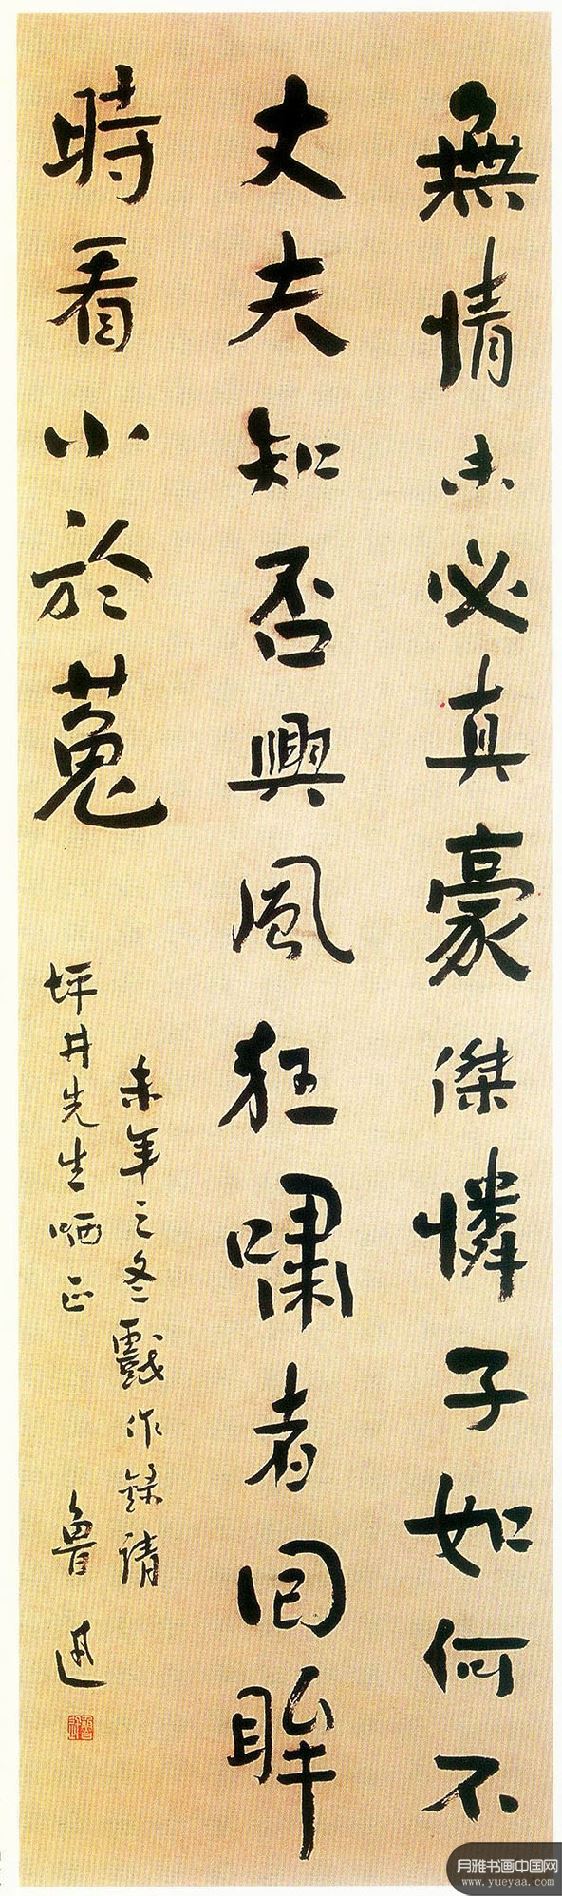 無情未必真豪傑憐子如何不
丈夫知否興風狂嘯者回眸
時看小於菟
未年之冬戲作錄請
坪井先生哂正
魯迅
月雅书画中国网
www.yueyaa.com